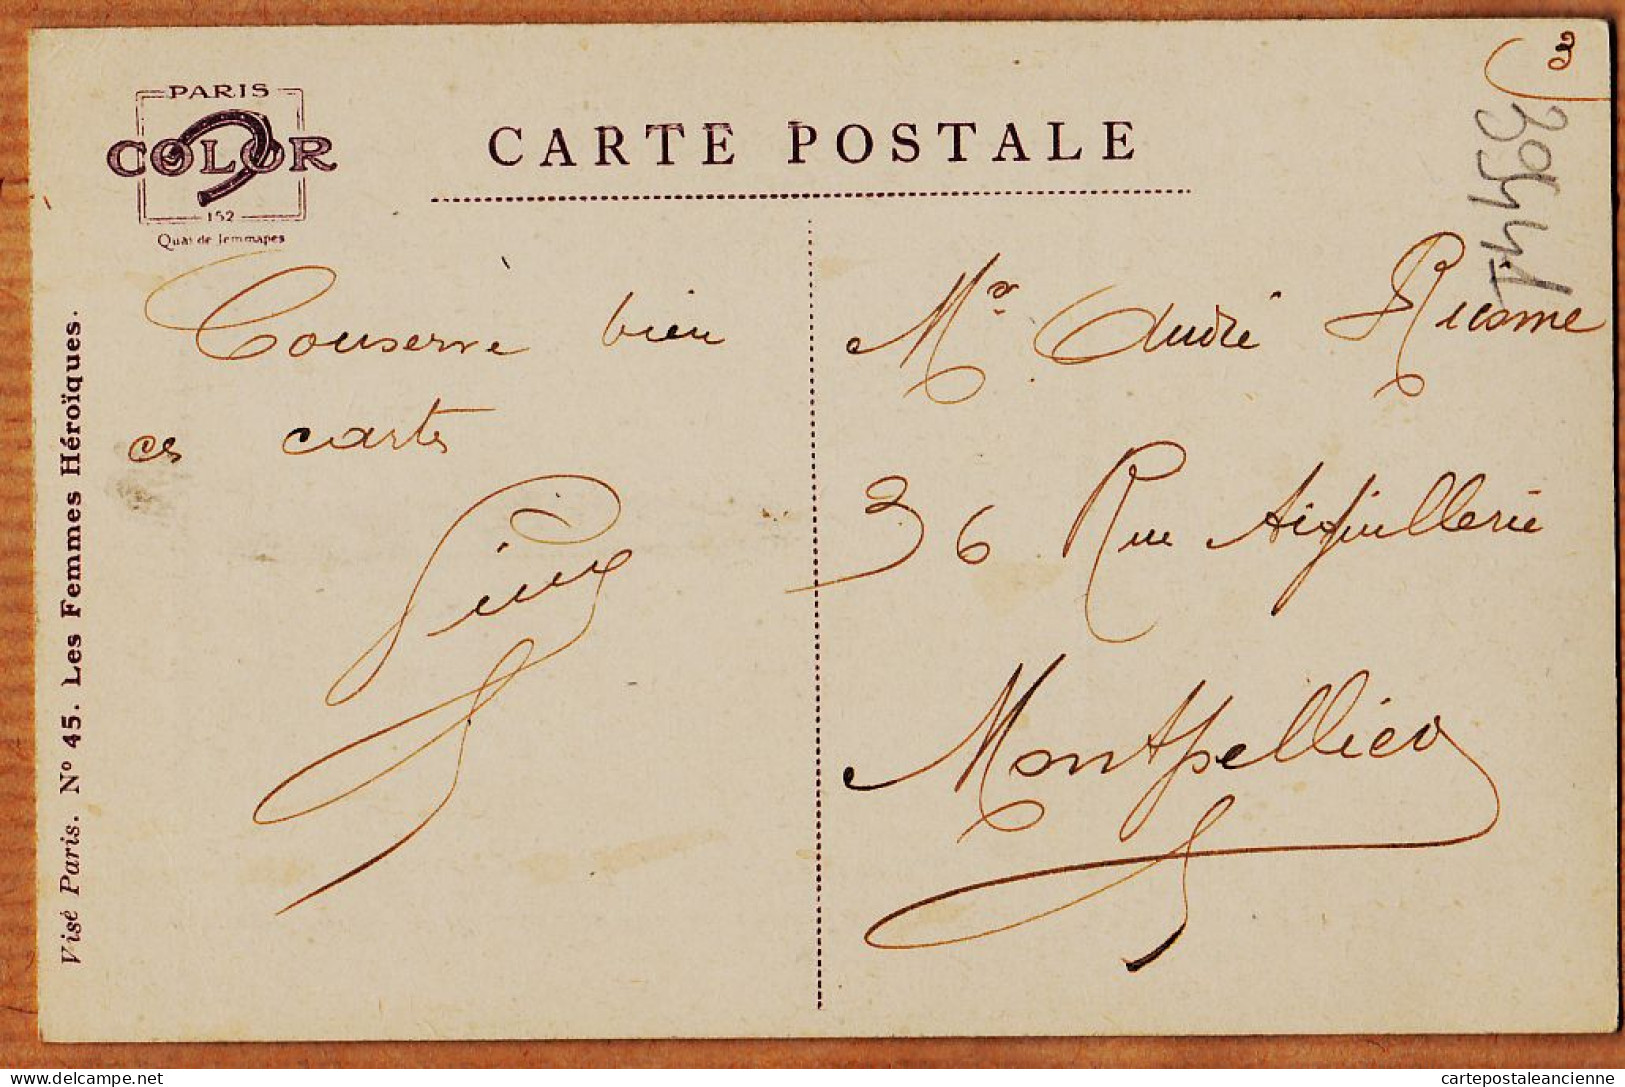 PARIS
COLOR
152
Quai de Jemmapes
CARTE POSTALE
3
Conserve bien
ces cartes
Mr André Ricome
36 Rue Aiguillerie
Montpellier
Visé Paris. N° 45. Les Femmes Héroïques.
delcampe.net
cartepostaleancienne